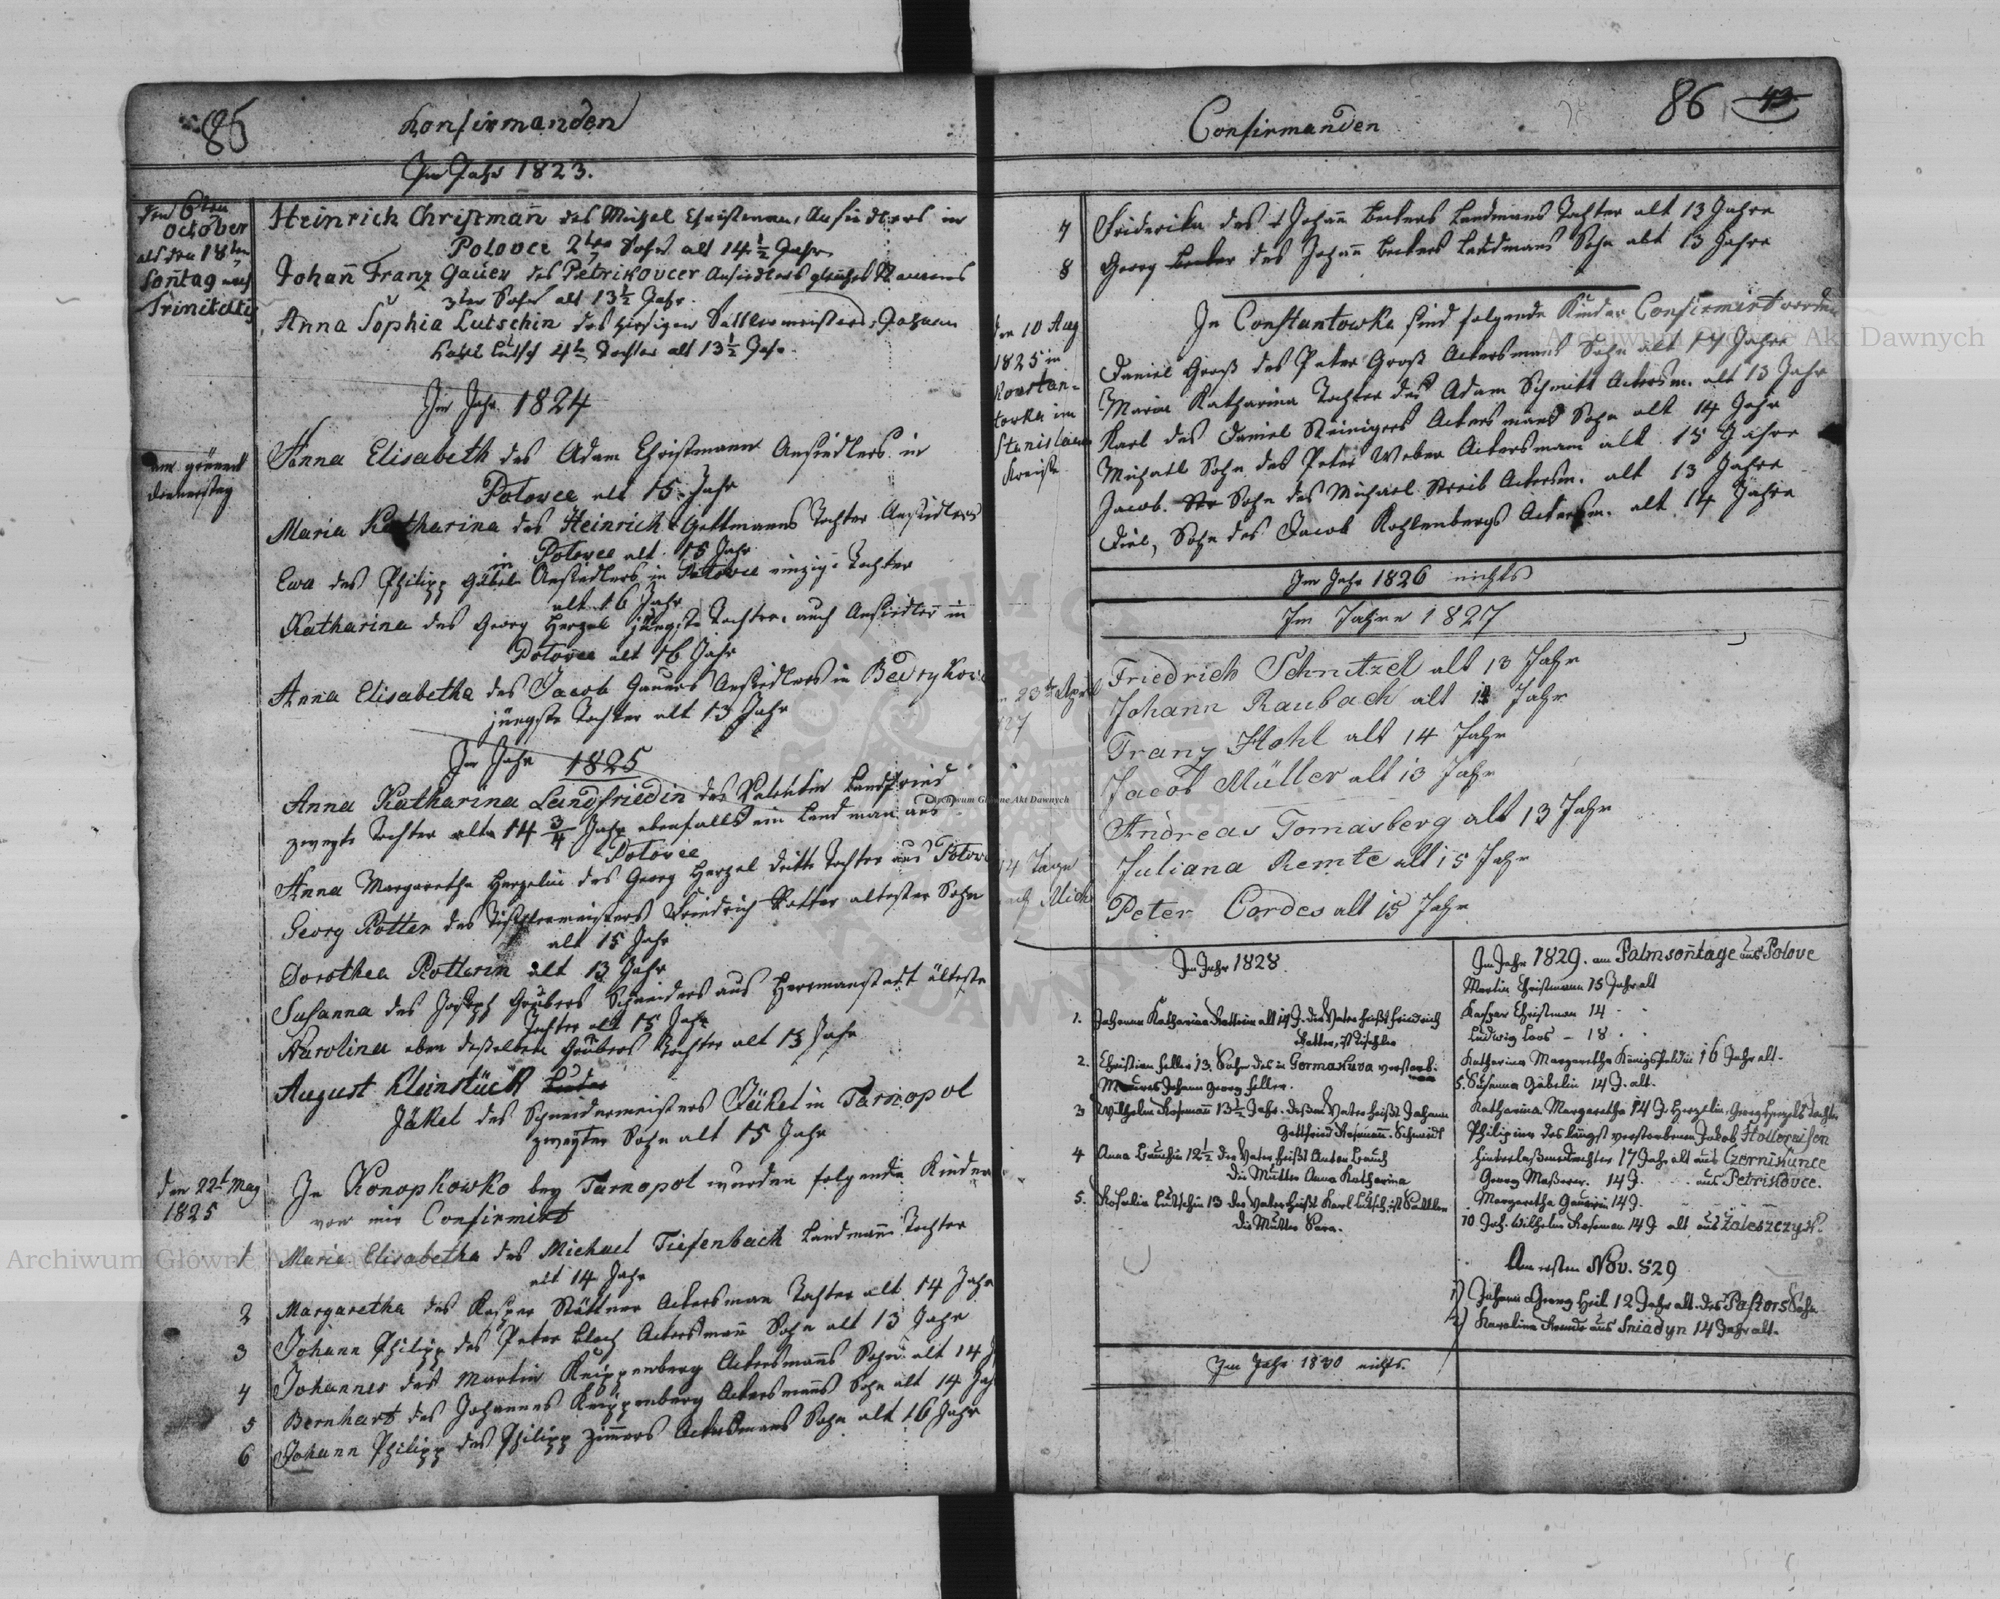 85
Confirmanden
Im Jahr 1823.
den 6ten
October
als den 18ten
Sontag nach
Trinitatis
Heinrich Christmañ des Michel Christmann, Ansiedlers in
Polovce 2ter Sohn alt 14 1/2 Jahr
Johañ Franz Gauer des Petrikovcer Ansiedlers gleiches Namens
3ter Sohn alt 13 1/2 Jahr.
Anna Sophia Lutschin des hiesigen Sattlermeisters, Johann
Karl Lutsch 4te Tochter alt 13 1/2 Jahr.
Im Jahr 1824
am grünen
donnerstag
Anna Elisabeth des Adam Christmann Ansiedlers in
Polovce alt 15 Jahr
Maria Katharina des Heinrich Gettmanns Tochter Ansiedlers
in Polovce alt 15 Jahr
Ewa des Philipp Gäbels Ansiedlers in Polovce einzige Tochter
alt 16 Jahr
Katharina des Georg Herzel jüngste Tochter, auch Ansiedler in
Polovce alt 16 Jahr
Anna Elisabetha des Jacob Gauers Ansiedlers in Bedrykov
jüngste Tochter alt 13 Jahr
Im Jahr 1825
Anna Katharina Landfriedin des Valentin Landfried
zweyte Tochter alt 14 3/4 Jahr ebenfalls ein Landman aus
Polovce
Anna Margaretha Herzelin des Georg Herzel dritte Tochter aus Polov
Georg Rotter des Tischlermeisters Friedrich Rotter altester Sohn
alt 15 Jahr
Dorothea Rotterin alt 13 Jahr
Susanna des Joseph Grubers Schneiders aus Hermanstadt älteste
Tochter alt 15 Jahr
Karolina eben desselben Grubers Tochter alt 13 Jahr
August Kleinstück
Jäkel des Schneidermeisters Jäkel in Tarnopol
zweyter Sohn alt 15 Jahr
den 22t May
1825
In Konopkowko bey Tarnopol wurden folgende Kinder
von mir Confirmirt
1 Maria Elisabetha des Michael Tiefenbach Landmanns Tochter
alt 14 Jahr
2 Margaretha des Kasper Stättner Ackersman Tochter alt 14 Jahr
3 Johann Philipp des Peter Bloch Ackersmañ Sohn alt 13 Jahr
4 Johannes des Martin Knippenberg Ackersmañs Sohn alt 14 J
5 Bernhart des Johannes Knippenberg Ackersmañs Sohn alt 14 Jah
6 Johann Philipp des Philipp Zimmers Ackersmans Sohn alt 16 Jahr
86 43
Confirmanden
7 Friderika des Johañ Beckers Landmans Tochter alt 13 Jahre
8 Georg Becker des Johañ Beckers Landmans Sohn alt 13 Jahre
den 10 Aug
1825 in
Konstan-
towka im
Stanislauer
Kreise
In Constantowka sind folgende Kinder Confirmirt worden
Daniel Groß des Peter Groß Ackersmans Sohn alt 14 Jahre
Maria Katharina Tochter des Adam Schmitt Ackersm. alt 13 Jahr
Karl des Daniel Steinigers Ackersmans Sohn alt 14 Jahr
Michael Sohn des Peter Weber Ackersmann alt 15 Jahre
Jacob. Sohn des Michael Streib Ackersm. alt 13 Jahre
Diel, Sohn des Jacob Kohlenbergs Ackersm. alt 14 Jahre
Im Jahr 1826 nichts
Im Jahre 1827
23t April
27
Friedrich Schnitzel alt 13 Jahr
Johann Raubach alt 14 Jahr
Franz Hohl alt 14 Jahr
Jacob Müller alt 13 Jahr
Andreas Tomasberg alt 13 Jahr
14 Tage
nach Mich
Juliana Remte alt 15 Jahr
Peter Cordes alt 15 Jahr
Im Jahr 1828.
1. Johanna Katharina Rotterin alt 14 J. der Vater heißt Friedrich
Rotter, ist Tischler
2. Christian Feller 13. Sohn des in Gormakuva verstorb.
Maurers Johann Georg Feller.
3 Wilhelm Rosmañ 13 1/2 Jahr. dessen Vater heißt Johann
Gottfried Rosmann. Schmidt
4 Anna Bauchin 12 1/2 der Vater heißt Anton Bauch
die Mutter Anna Katharina
5. Rosalia Lutschin 13 der Vater heißt Karl Lutsch, ist Sattler
die Mutter Sara.
Im Jahr 1829. am Palmsoñtage aus Polove
Martin Christmann 15 Jahr alt
Kaspar Christman 14 - -
Ludwig Loos - 18 - -
Katharina Margaretha Königsfeldin 16 Jahr alt.
5. Susanna Gäbelin 14 J. alt.
Katharina Margaretha 14 J. Herzelin, Georg Herzels Tochter
Philipina des längst verstorbenen Jakob Hollereisen
hinterlassene Tochter 17 Jahr alt aus Czernikunce
Georg Maßerer. 14 J. aus Petrikovce.
Margaretha Gauerin 14 J.
10 Joh. Wilhelm Rosman 14 J alt aus Zaleszczyk.
Am ersten Nov. 829
1) Johann Georg Heil 12 Jahr alt. des Pastors Sohn
2) Karolina Remde aus Sniadyn 14 Jahr alt.
Im Jahr 1830 nichts.
Archiwum Główne Akt Dawnych
Archiwum Główne Akt Dawnych
Archiwum Główne Akt Dawnych